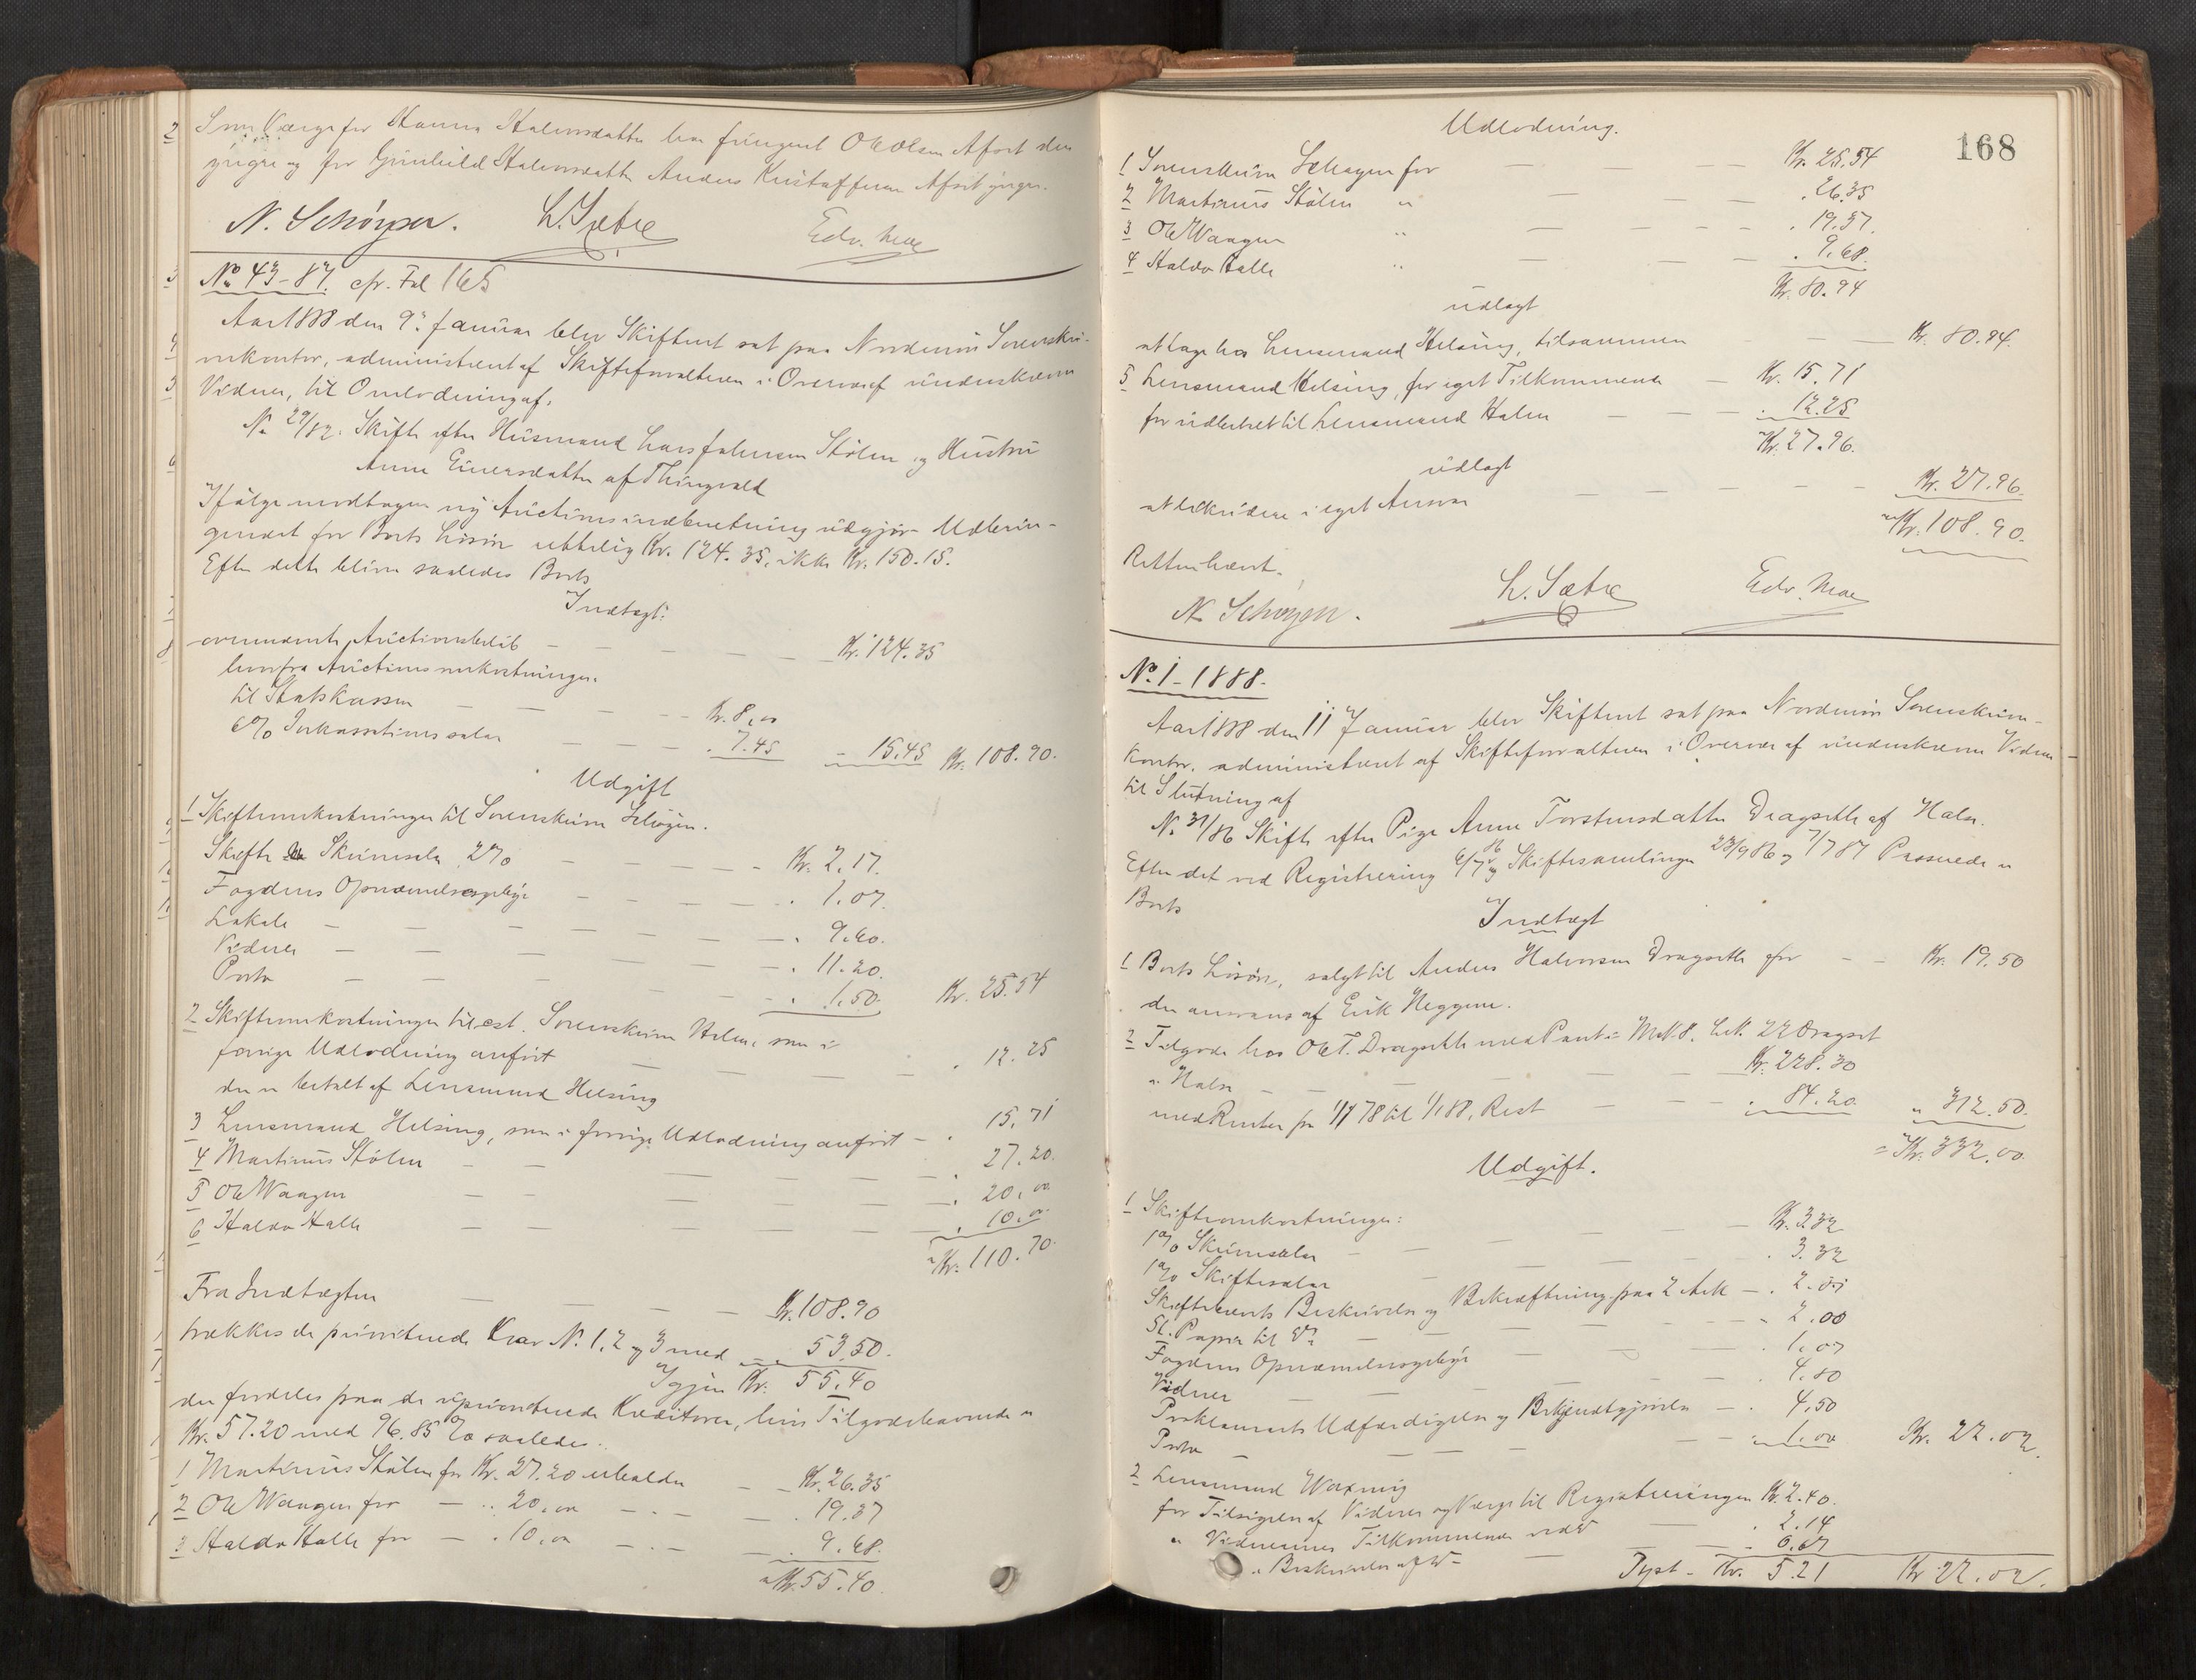 Som Værge for Hanna Halvorsdatter har fungeret Ole Olsen Afset den
yngre og for Gunhild Halvorsdatter Anders Kristoffersen Afset yngre.
N. Schöyen. L. Sætre Edv. Moe
No 43-87. cfr. Fol 165
Aar 1888 den 9de Januar blev Skifteret sat paa Nordmøre Sorenskri-
verkontor, administreret af Skifteforvalteren i Overvær af underskrevne
Vidner, til Omlodning af:
No 29/82. Skifte efter Husmand Lars Johnsen Stölen og Hustru
Anne Einersdatter af Thingvold
Ifölge modtagen ny Auctionsindberetning udgjør Udbrin-
gendet for Boets Lösöre rettelig Kr. 124.35, ikke Kr. 150.15.
Efter dette bliver saaledes Boets
Indtægt:
ovennævnte Auctionsbelöb Kr. 124.35
hvorfra Auctionsomkostninger.
til Statskassen Kr. 8,00
6% Inkassationssalær 7.45 15.45 Kr. 108.90.
Udgift
1 Skifteomkostninger til Sorenskriver Schöyen.
Skifte Skriversalær 2% Kr. 2.17.
Fogdens Opnævnelsesgebyr 1.07.
Lokale 9.60.
Vidner 11.20.
Porto 1.50. Kr. 25.54
2 Skifteomkostninger til cst. Sorenskriver Holm, som i
forrige Udlodning anfört 12.25
der er betalt af Lensmand Helsing
3 Lensmand Helsing, som i forrige Udlodning anfört 15.71
4 Martinus Stölen 27.20.
5 Ole Waagen 20,00
6 Haldo Halle 10,00
Kr. 110.70.
Fra Indtægten Kr. 108.90
trækkes de prioriterede Krav No. 1, 2 og 3 med 53.50.
Igjen Kr. 55.40
der fordeles paa de uprioriterede Kreditorer, hvis Tilgodehavende er
Kr. 57.20 med 96.85 % saaledes:
1 Martinus Stölen for Kr. 27.20 erholder Kr. 26.35
2 Ole Waagen for 20,00 19.37
3 Haldo Halle for 10,00 9.68.
Kr. 55.40.
168
Udlodning.
1 Sorenskriver Schøyen for Kr. 25.54
2 Martinus Stölen " 26.35
3 Ole Waagen " 19.37.
4 Haldo Halle " 9.68.
Kr. 80.94
udlagt
at tage hos Lensmand Helsing, tilsammen Kr. 80.94.
5 Lensmand Helsing, for eget Tilkommende Kr. 15.71
for udbetalt til Lensmand Holm 12.25
Kr. 27.96.
udlagt
at likvidere i eget Ansvar Kr. 27.96.
Kr. 108.90.
Retten hævet.
N. Schöyen. L. Sætre Edv. Moe
No 1-1888.
Aar 1888 den 11 Januar blev Skifteret sat paa Nordmøre Sorenskriver-
kontor, administreret af Skifteforvalteren i Overvær af underskrevne Vidner
til Slutning af
No 31/86 Skifte efter Pige Anne Torstensdatter Dragsetle af Halse.
Efter det ved Registrering 6/7 86 og Skiftesamlinger 23/9 86 og 7/7 87 Passerede er
Boets
Indtægt
1 Boets Lösöre, solgt til Anders Halvorsen Dragsetle for Kr. 19.50
der ansvares af Erik Heggem.
2 Tilgode hos Ole T. Dragsetle med Pant i M.N. 8, L.N. 22 Dragset
i Halse Kr. 228.30
med Renter fra 1/1 78 til 1/1 88, Rest 84.20. 312.50.
Kr. 332.00.
Udgift.
1 Skifteomkostninger:
1% Skriversalær Kr. 3.32
1% Skiftesalær 3.32
Skiftebrevets Beskrivelse og Bekræftning paa 2 Ark 2.00
St. Papir til Do 2.00
Fogdens Opnævnelsesgebyr 1.07
Vidner 4.80
Proklamaets Udfærdigelse og Bekjendtgjörelse 4.50
Porto 1.00 Kr. 22.02.
2 Lensmand Waxvig
for Tilsigelse af Vidner og Værge til Registreringen Kr. 2.40.
" Vidnernes Tilkommende ved Do 2.14
" Beskrivelse af Do 0.67
Tpst. Kr. 5.21 Kr 22.02.